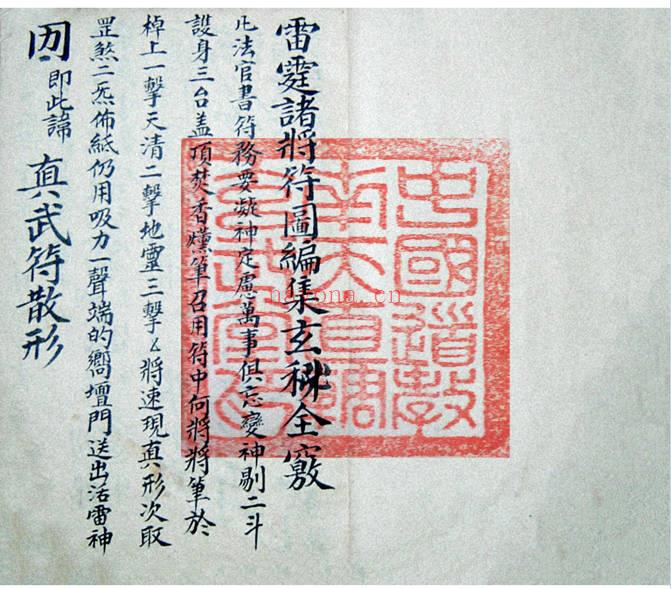 雷霆諸將符圖編集玄秘全竅
凡法官書符務要凝神定慮萬事俱忘變神剔二斗
設身三台盖頂焚香爐筆召用符中何將將筆於
棹上一擊天清二擊地靈三擊將速現真形次取
罡煞二炁佈紙仍用吸力一聲端的嚮壇門送出活雷神
即此諱
真武符散形
中國道教
南天直
nayona.cn